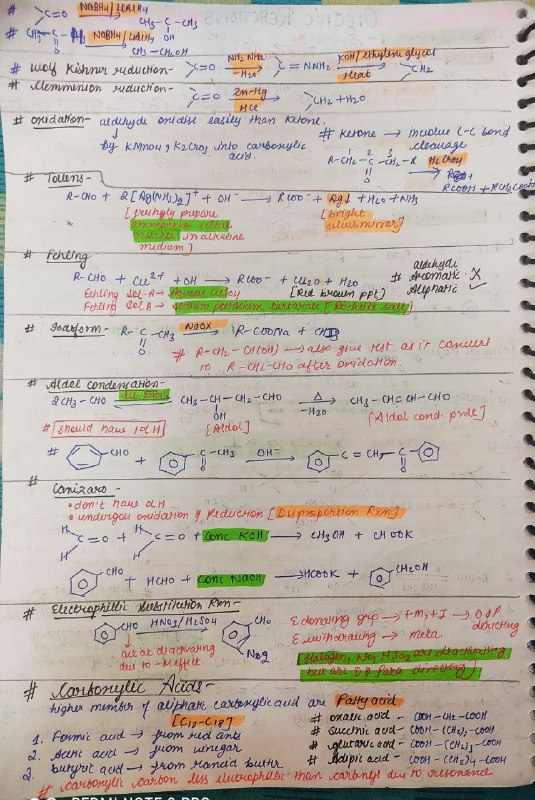 # >C=O NaBH4/LiAlH4 → CH3-C-CH3
# CH3-C-H NaBH4/LiAlH4 → CH3-CH2OH
O
# Wolf Kishner reduction- >C=O NH2NH2 → -H2 >C=NNH2 KOH/ethylene glycol → Heat >CH2
# Clemmension reduction- >C=O Zn-Hg → HCl >CH2+H2O
# Oxidation- aldehyde oxidise easily than ketone.
↓
By KMnO4 & K2Cr2O7 into carboxylic acid.
# Ketone → involve C-C bond cleavage
1 2 3
R-CH2-C-CH2-R H2CrO4 →
O
RCOOH + RCH2COOH
# Tollens-
R-CHO + 2[Ag(NH3)2]+ + OH- → RCOO- + Ag↓ + H2O + NH3
[freshly prepare ammonium silver nitrate in alkaline medium]
[bright silver mirror]
# Fehling
R-CHO + Cu2+ + OH → RCOO- + Cu2O + H2O
[Red brown ppt]
aldehyde
# Aromatic X
Aliphatic ✓
Fehling Sol-A →
Fehling Sol B → sodium potassium tartarate [Rochelle salt]
# Iodoform- R-C-CH3 NaOX → R-COONa +
O
# R-CH2-CH(OH) → also give test as it convert to R-CH2-CHO after oxidation.
# Aldol condensation-
2CH3-CHO dil NaOH CH3-CH-CH2-CHO Δ → -H2O CH3-CH=CH-CHO
OH
# Should have 1αH
[Aldol]
[Aldol cond. prdt]
# CHO + C-CH3 OH- → C=CH- C
O O
# Canizaro-
• don't have αH
• undergoes oxidation & Reduction [Disproportion Rxn]
H H
C=O + C=O + conc KOH → CH3OH + CHOOK
H H
CHO + HCHO + conc NaOH → HCOOK + CH2OH
# Electrophillic Substitution Rxn-
CHO HNO3/H2SO4 → CHO
↓
act as deactivating due to -M effect
E donating grp → +M, +I → O&P directing
E withdrawing → meta.
Halogen, are deactivating but are O& Para direcing
# Carboxylic Acids-
higher member of aliphatic carboxylic acid are Fatty acid
[C12-C18]
1. Formic acid → from red ants
2. Acetic acid → from vinegar
2. Butyric acid → from rancid butter
# oxalic acid - COOH-CH2-COOH
# succinic acid - COOH-(CH2)2-COOH
# glutaric acid - COOH-(CH2)3-COOH
# Adipic acid - COOH-(CH2)4 COOH
# Carboxylic carbon less electrophillic than carbonyl due to resonance